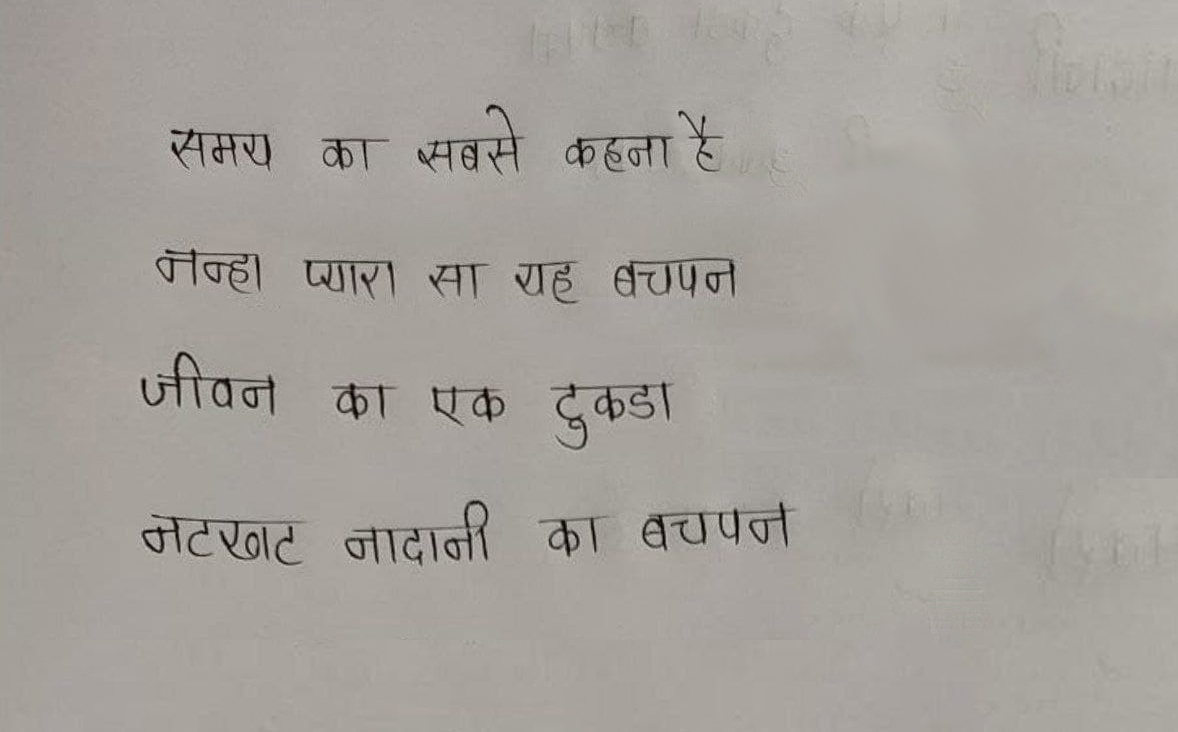 समय का सबसे कहना है
नन्हा प्यारा सा यह बचपन
जीवन का एक टुकडा
नटखट नादानी का बचपन